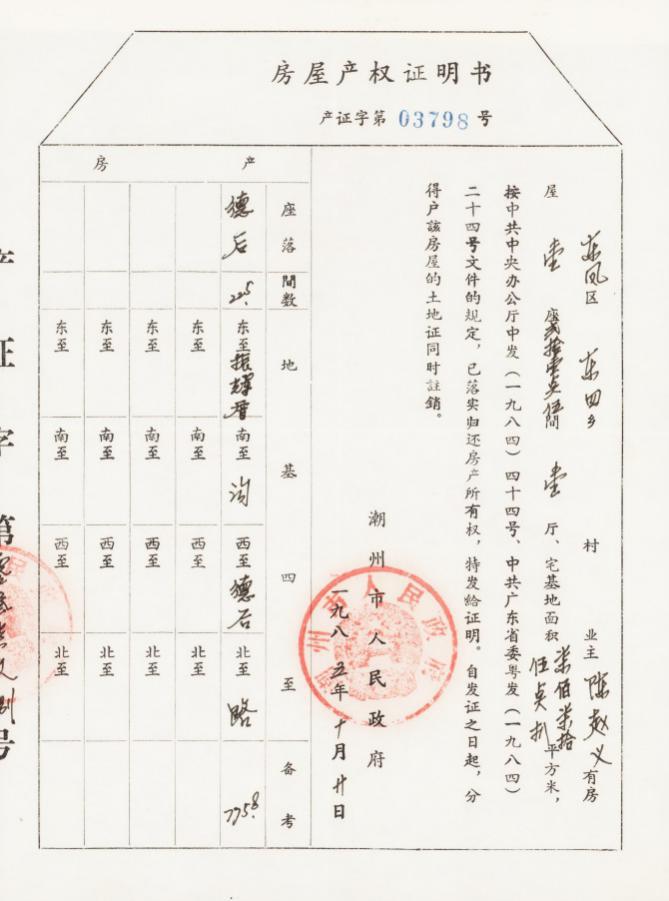 房屋产权证明书
产证字第 03798 号
东凤区 东四乡 村 业主 陈赵义 有房
屋 壹 座 贰拾壹点伍 間 壹 厅、宅基地面积 柒佰柒拾伍点捌 平方米，
按中共中央办公厅中发（一九八四）四十四号、中共广东省委粤发（一九八四）
二十四号文件的规定，已落实归还房产所有权，特发给证明。自发证之日起，分
得户該房屋的土地证同时註銷。
潮州市人民政府
一九八五年十月廿日
潮州市人民政府
房产
座落 間数 地基四至 备考
德后 东至 南至 沟 西至 德后 北至 路 775.8
东至 南至 西至 北至
东至 南至 西至 北至
东至 南至 西至 北至
产证字第 号